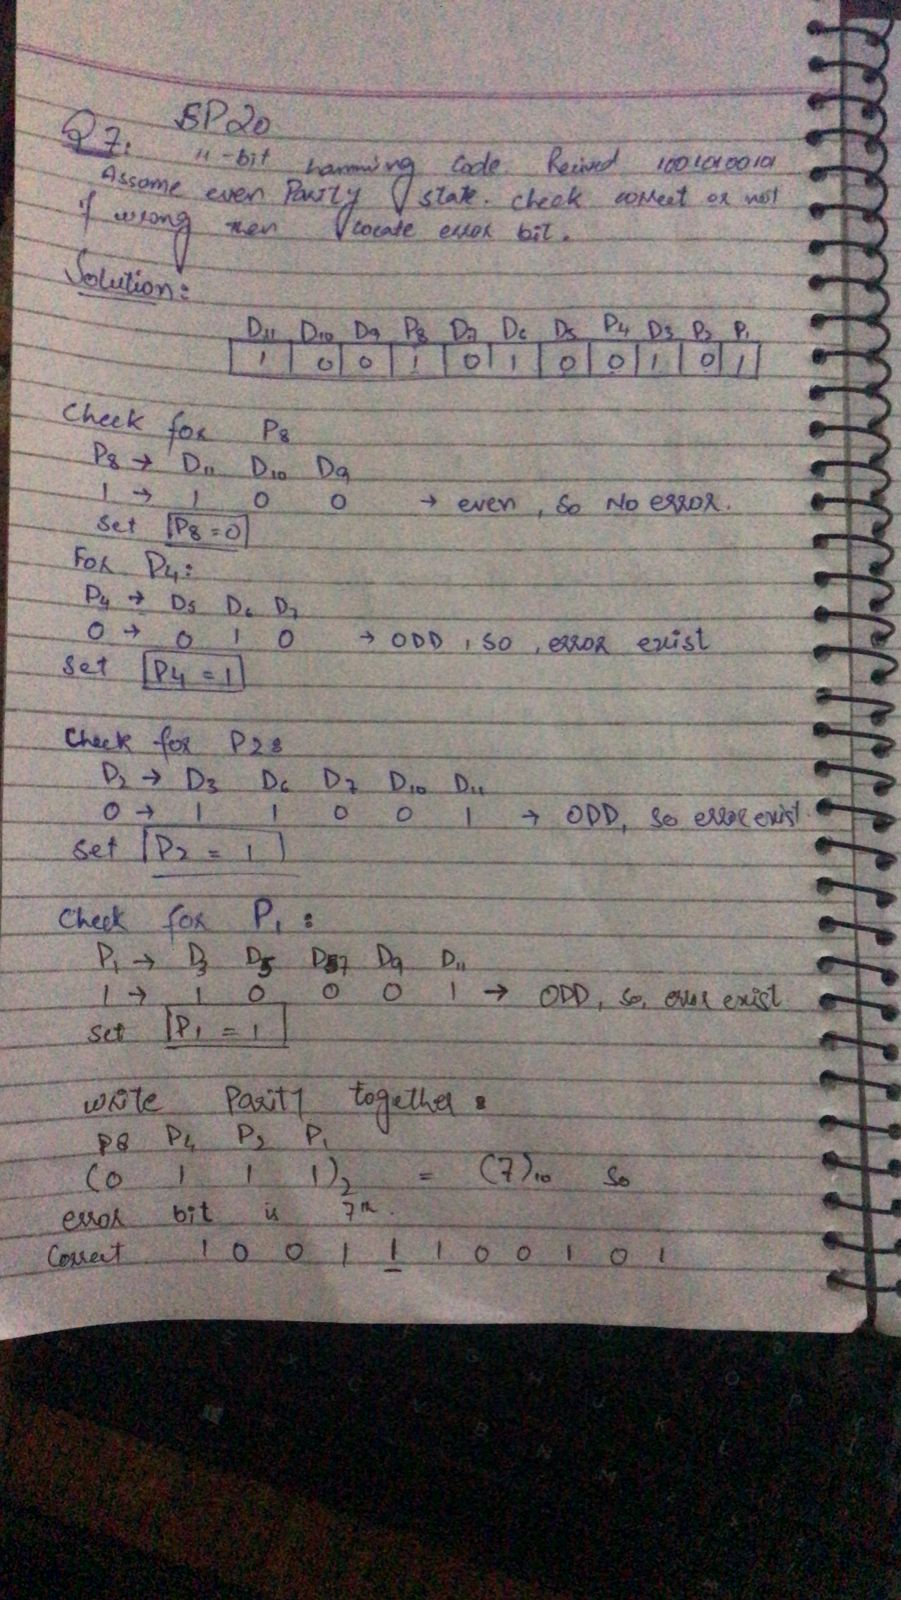 SP20
Q7. 11-bit hamming code Recived 10010100101
Assume even Parity state. check correct or not
if wrong then locate error bit.
Solution:
D11 D10 D9 P8 D7 D6 D5 P4 D3 P2 P1
1 0 0 1 0 1 0 0 1 0 1
Check for P8
P8 → D11 D10 D9
1 → 1 0 0 → even, so No error.
Set P8=0
For P4:
P4 → D5 D6 D7
0 → 0 1 0 → ODD, so, error exist
set P4 = 1
Check for P2:
D2 → D3 D6 D7 D10 D11
0 → 1 1 0 0 1 → ODD, so error exist
set P2 = 1
Check for P1:
P1 → D3 D5 D7 D9 D11
1 → 1 0 0 0 1 → ODD, so, error exist
set P1 = 1
write Parity together:
P8 P4 P2 P1
(0 1 1 1)2 = (7)10 so
error bit is 7th.
Correct 1 0 0 1 1 1 0 0 1 0 1